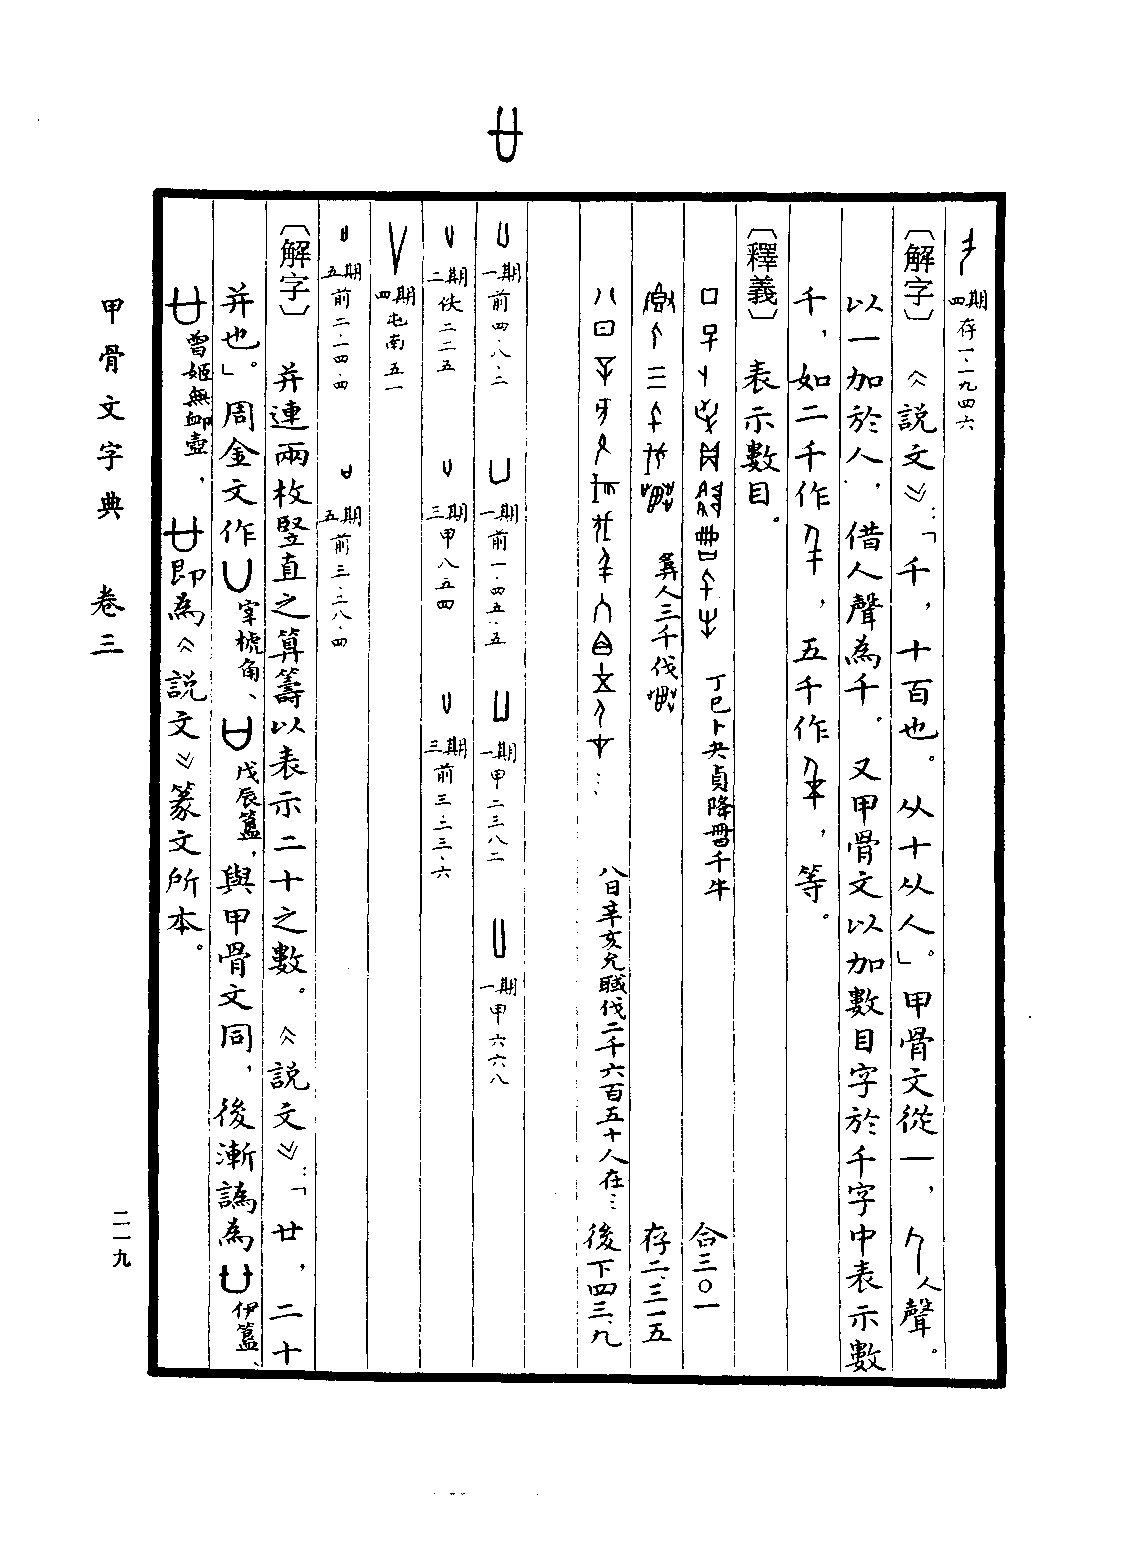 廿
四期存一・一九四六
〔解字〕《説文》:「千，十百也。从十从人」。甲骨文從一，人聲。
以一加於人，借人聲為千。又甲骨文以加數目字於千字中表示數
千，如二千作，五千作，等。
〔釋義〕表示數目。
丁巳卜 貞降千牛 合三〇一
人三千伐 存二・三一五
八日辛亥允 伐二千六百五十人在… 後下四三・九
一期前四・八・二 一期前一・四五・五 一期甲二三八二 一期甲六六八
二期佚二二五 三期甲八五四 三期前三・二三・六
四期屯南五一
五期前二・一四・四 五期前三・二八・四
〔解字〕并連兩枚豎直之算籌以表示二十之數。《説文》:「廿，二十
并也。」周金文作宰椃角、戊辰簋，與甲骨文同，後漸譌為伊簋、
廿曾姬無卹壺，廿即為《説文》篆文所本。
甲骨文字典 卷三
二一九